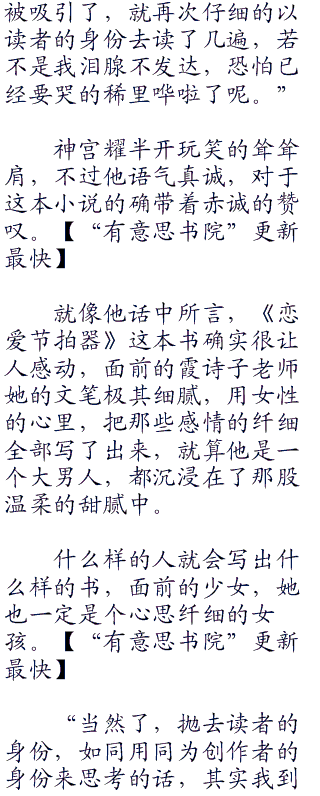 被吸引了，就再次仔细的以
读者的身份去读了几遍，若
不是我泪腺不发达，恐怕已
经要哭的稀里哗啦了呢。”
神宫耀半开玩笑的耸耸
肩，不过他语气真诚，对于
这本小说的确带着赤诚的赞
叹。【“有意思书院”更新
最快】
就像他话中所言，《恋
爱节拍器》这本书确实很让
人感动，面前的霞诗子老师
她的文笔极其细腻，用女性
的心里，把那些感情的纤细
全部写了出来，就算他是一
个大男人，都沉浸在了那股
温柔的甜腻中。
什么样的人就会写出什
么样的书，面前的少女，她
也一定是个心思纤细的女
孩。【“有意思书院”更新
最快】
“当然了，抛去读者的
身份，如同用同为创作者的
身份来思考的话，其实我到